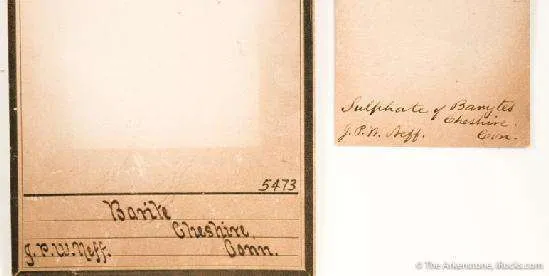 5473
Barite
Cheshire,
J. P. W. Neff. Conn.
Sulphate of Barytes
Cheshire.
J. P. W. Neff. Conn.
© The Arkenstone, iRocks.com